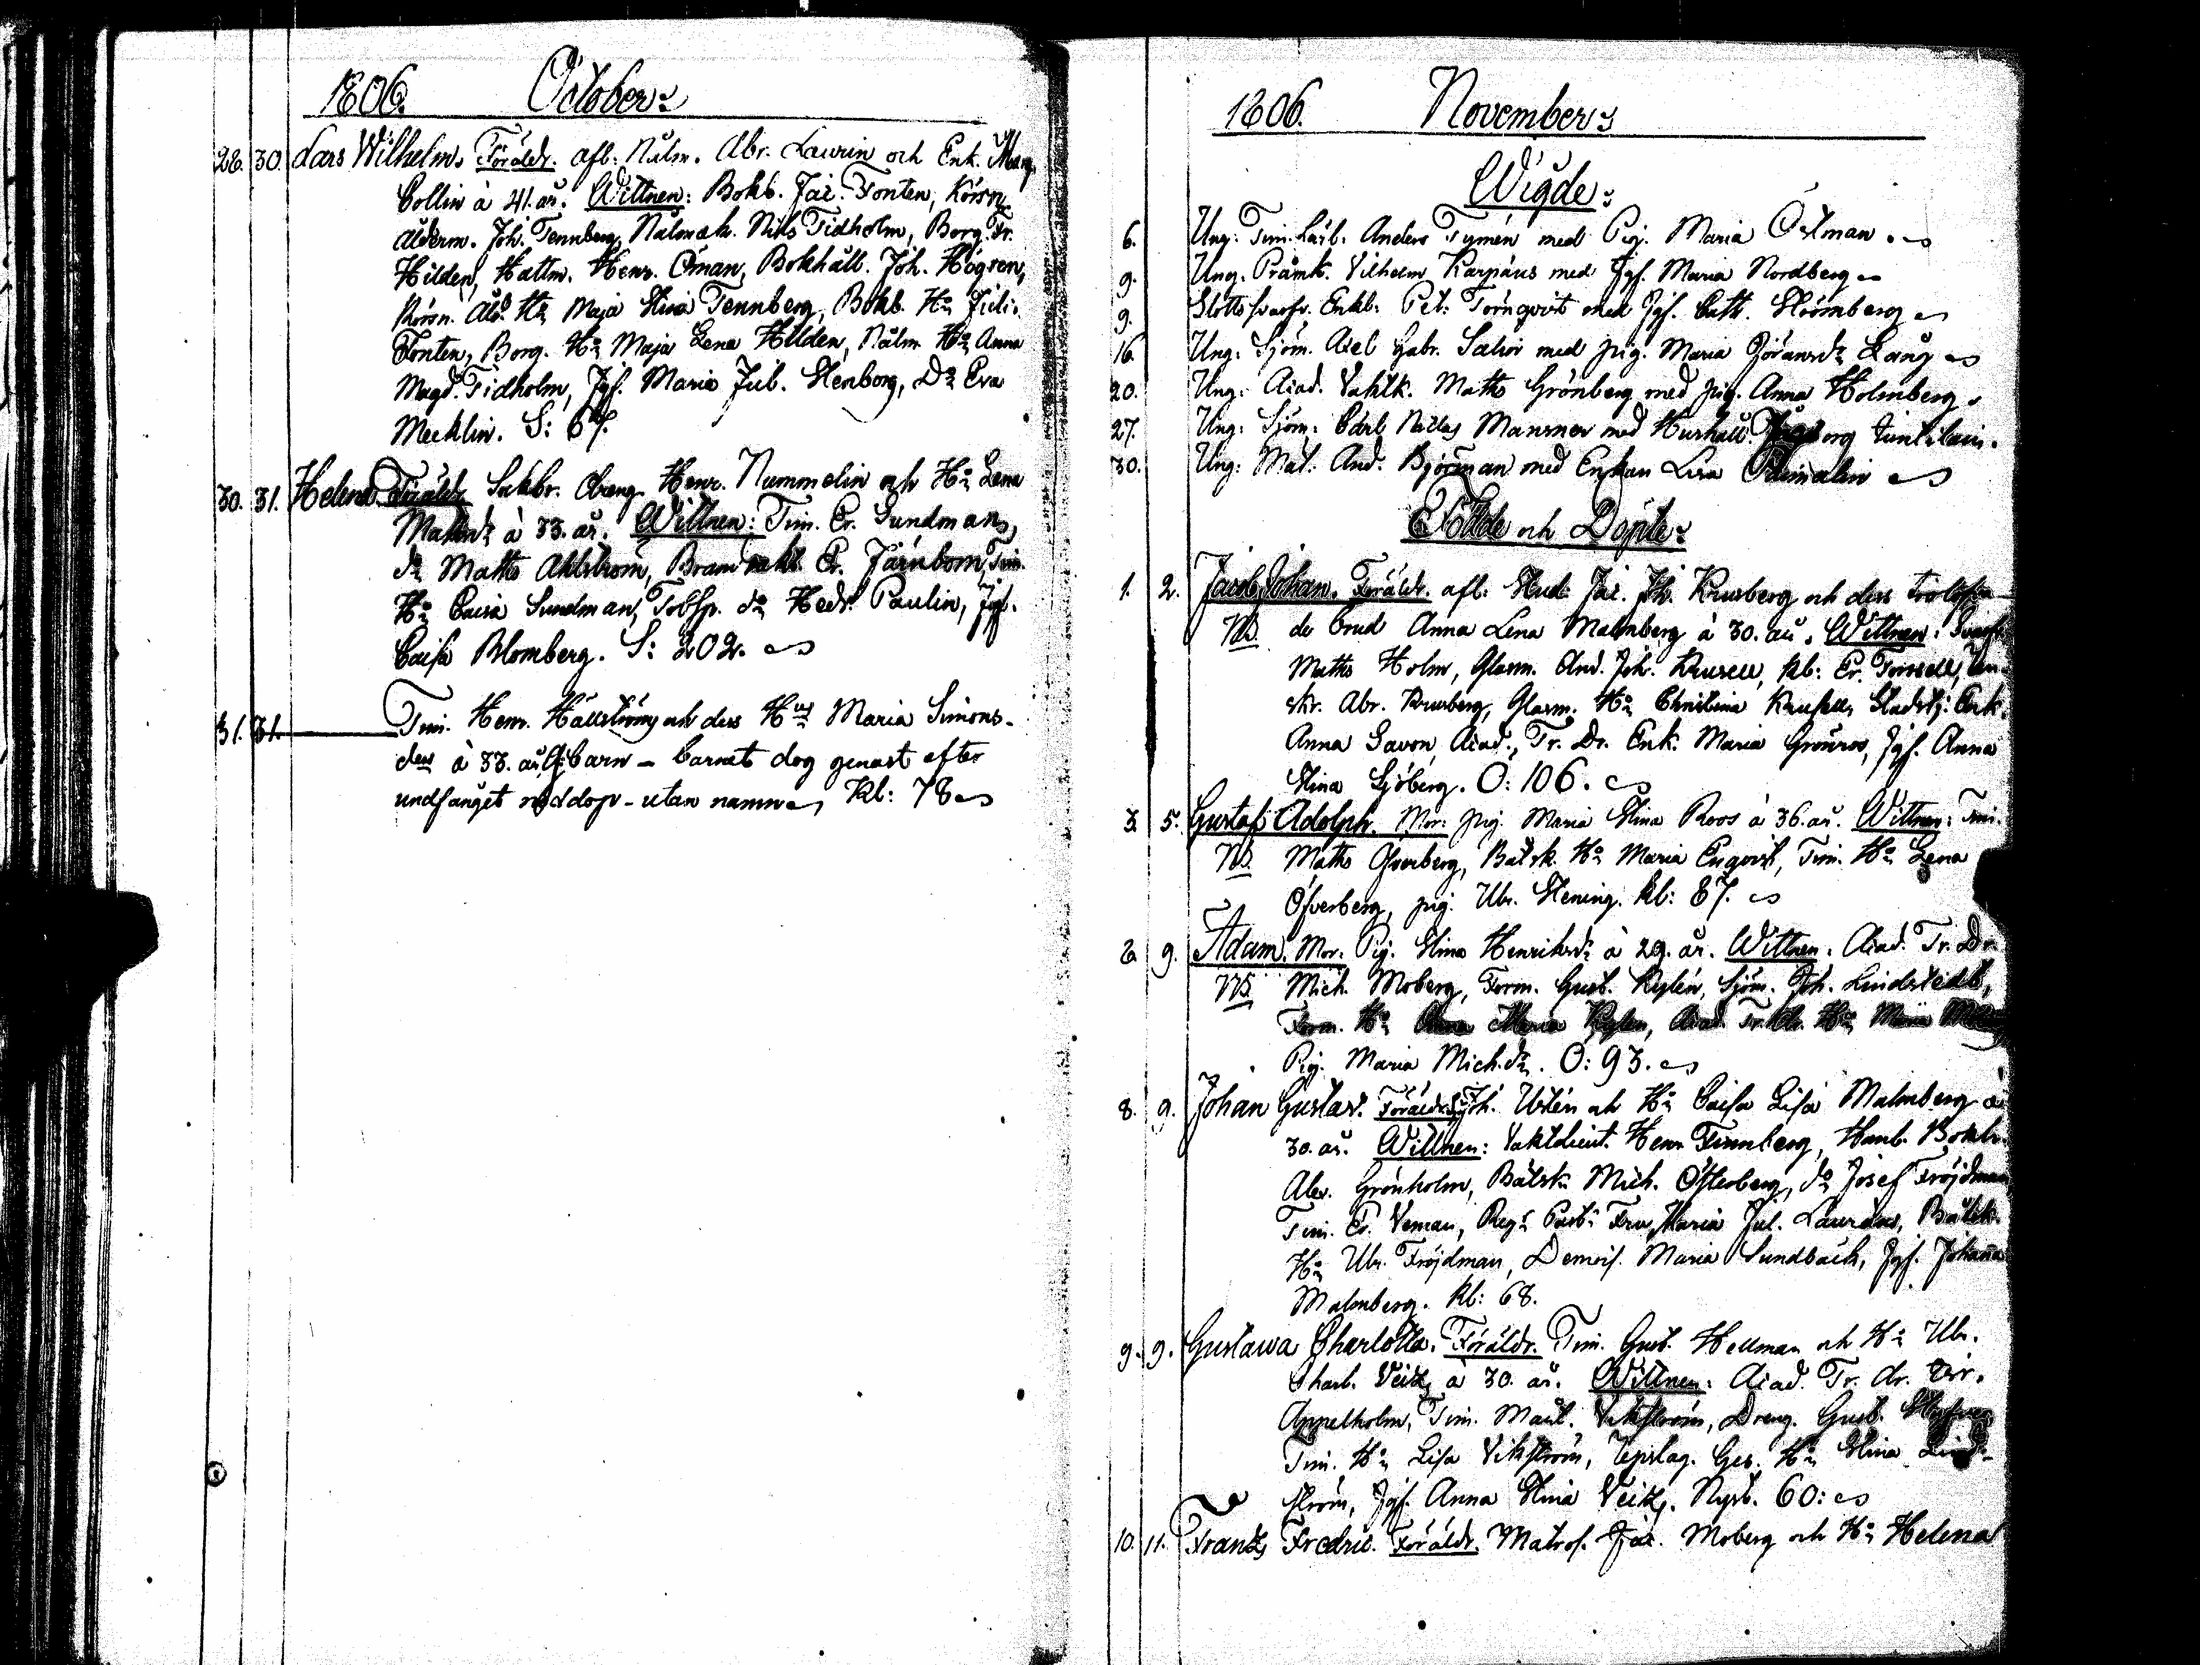 1806. October:
28. 30. Lars Wilhelm. Föräldr. afl: Nålm. Abr. Laurin och Enk. Marg.
Collin à 41. år. Wittnen: Bokb. Jac. Tonten, Körsn.
Ålderm. Joh. Tennberg, Nålmak. Nils Tidholm, Borg. Fr.
Hilden, Hattm. Henr. Öman, Bokhåll. Joh. Högren,
Körsn. Åld. Hu Maja Stina Tennberg, Bokb. Hu Juli.
Tonten, Borg. Hu Maja Lena Hilden, Nålm. Hu Anna
Magd. Tidholm, Jgf. Maria Jul. Stenborg, Do Eva
Mecklin. S: 67.
30. 31. Helena Föräldr. Henr. Nummelin och Hu Lena
Mattsdr à 33. år. Wittnen: Tim. Er. Sundman,
do Matts Ahlström, Brandvakt. Er. Järnbom, Tim.
Hu Caisa Sundman, Tobsp. do Hedv. Paulin, Jgf.
Caisa Blomberg. S: 202.
31. 31. Tim. Henr. Hällström och dess Hus Maria Simons-
der à 33. år barn - barnet dog genast efter
undfånget nöddop - utan namn, Kl: 78
1806. November:
Wigde:
6. Ung. Tim. Lärl. Anders Tymén med Pig. Maria Östman.
9. Ung. Vilhelm Karpäus med Jgf. Maria Nordberg
9. Enkl. Pet: Törnqvist med Jgf. Cath. Strömberg
16. Ung: Sjöm. Axel Gabr. Salin med pig. Maria Göransdr Lång
20. Ung: Acad. Vaktk. Matts Grönberg med pig. Anna Holmberg
27. Ung: Sjöm: Carl Niclas Mansner med Hushåll.
30. Ung: Mål: And. Björkman med Enkan Lisa
Födde och Döpte:
1. 2. Jacob Johan. Föräldr. afl: Stud: Jac. Joh. Krusberg och dess trolofva-
NB. de brud Anna Lena Malmberg à 30. år. Wittnen: Svarfv.
Matts Holm, Glasm. And. Joh. Krusell, Kl: Er. Forssell,
skr. Abr. Krusberg, Glasm. Hu Christina Krusell, Enk.
Anna Savon, Acad. Tr. Dr. Enk. Maria Grönros, Jgf. Anna
Stina Sjöberg. O: 106.
3. 5. Gustaf Adolph. Mor: pig. Maria Stina Roos à 36. år. Wittnen: Tim.
NB. Matts Öfverberg, Båtsk. Hu Maria Enqvist, Tim. Hu Lena
Öfverberg, pig. Ulr. Stening. Kl: 87.
6. 9. Adam. Mor: Pig. Stina Henriksdr à 29. år. Wittnen. Acad. Tr. Dr.
NB. Mich. Moberg, Form. Gust. Rylén, Sjöm. Joh. Lindstedt,
Form. Hu Anna Maria Rylen, Acad. Tr. Dr. Hu Maria
Pig. Maria Mich.dr. O: 93.
8. 9. Johan Gustav. Föräldr. Joh. Uslén och Hu Caisa Lisa Malmberg à
30. år. Wittnen: Henr. Finnberg, Hand. Bokh.
Alex. Grönholm, Båtsk. Mich. Österberg, do Josef Fröjdman
Tim. Er. Veman, Fru Maria Jul. Lauräus, Båtsk.
Hu Ulr. Fröjdman, Demois. Maria Sundbäck, Jgf. Johanna
Malmberg. Kl: 68.
9. 9. Gustawa Charlotta. Föräldr. Tim. Gust. Hellman och Hu Ulr.
Charl. Veitz à 30. år. Wittnen: Acad. Tr. dr.
Appelholm, Tim. Vikström, Dreng. Gust.
Tim. Hu Lisa Vikström, Tapislag. Ges. Hu Stina Lind-
ström, Jgf. Anna Stina Veitz. Nyst. 60:
10. 11. Frantz Fredric. Föräldr. Matros. Jac. Moberg och Hu Helena